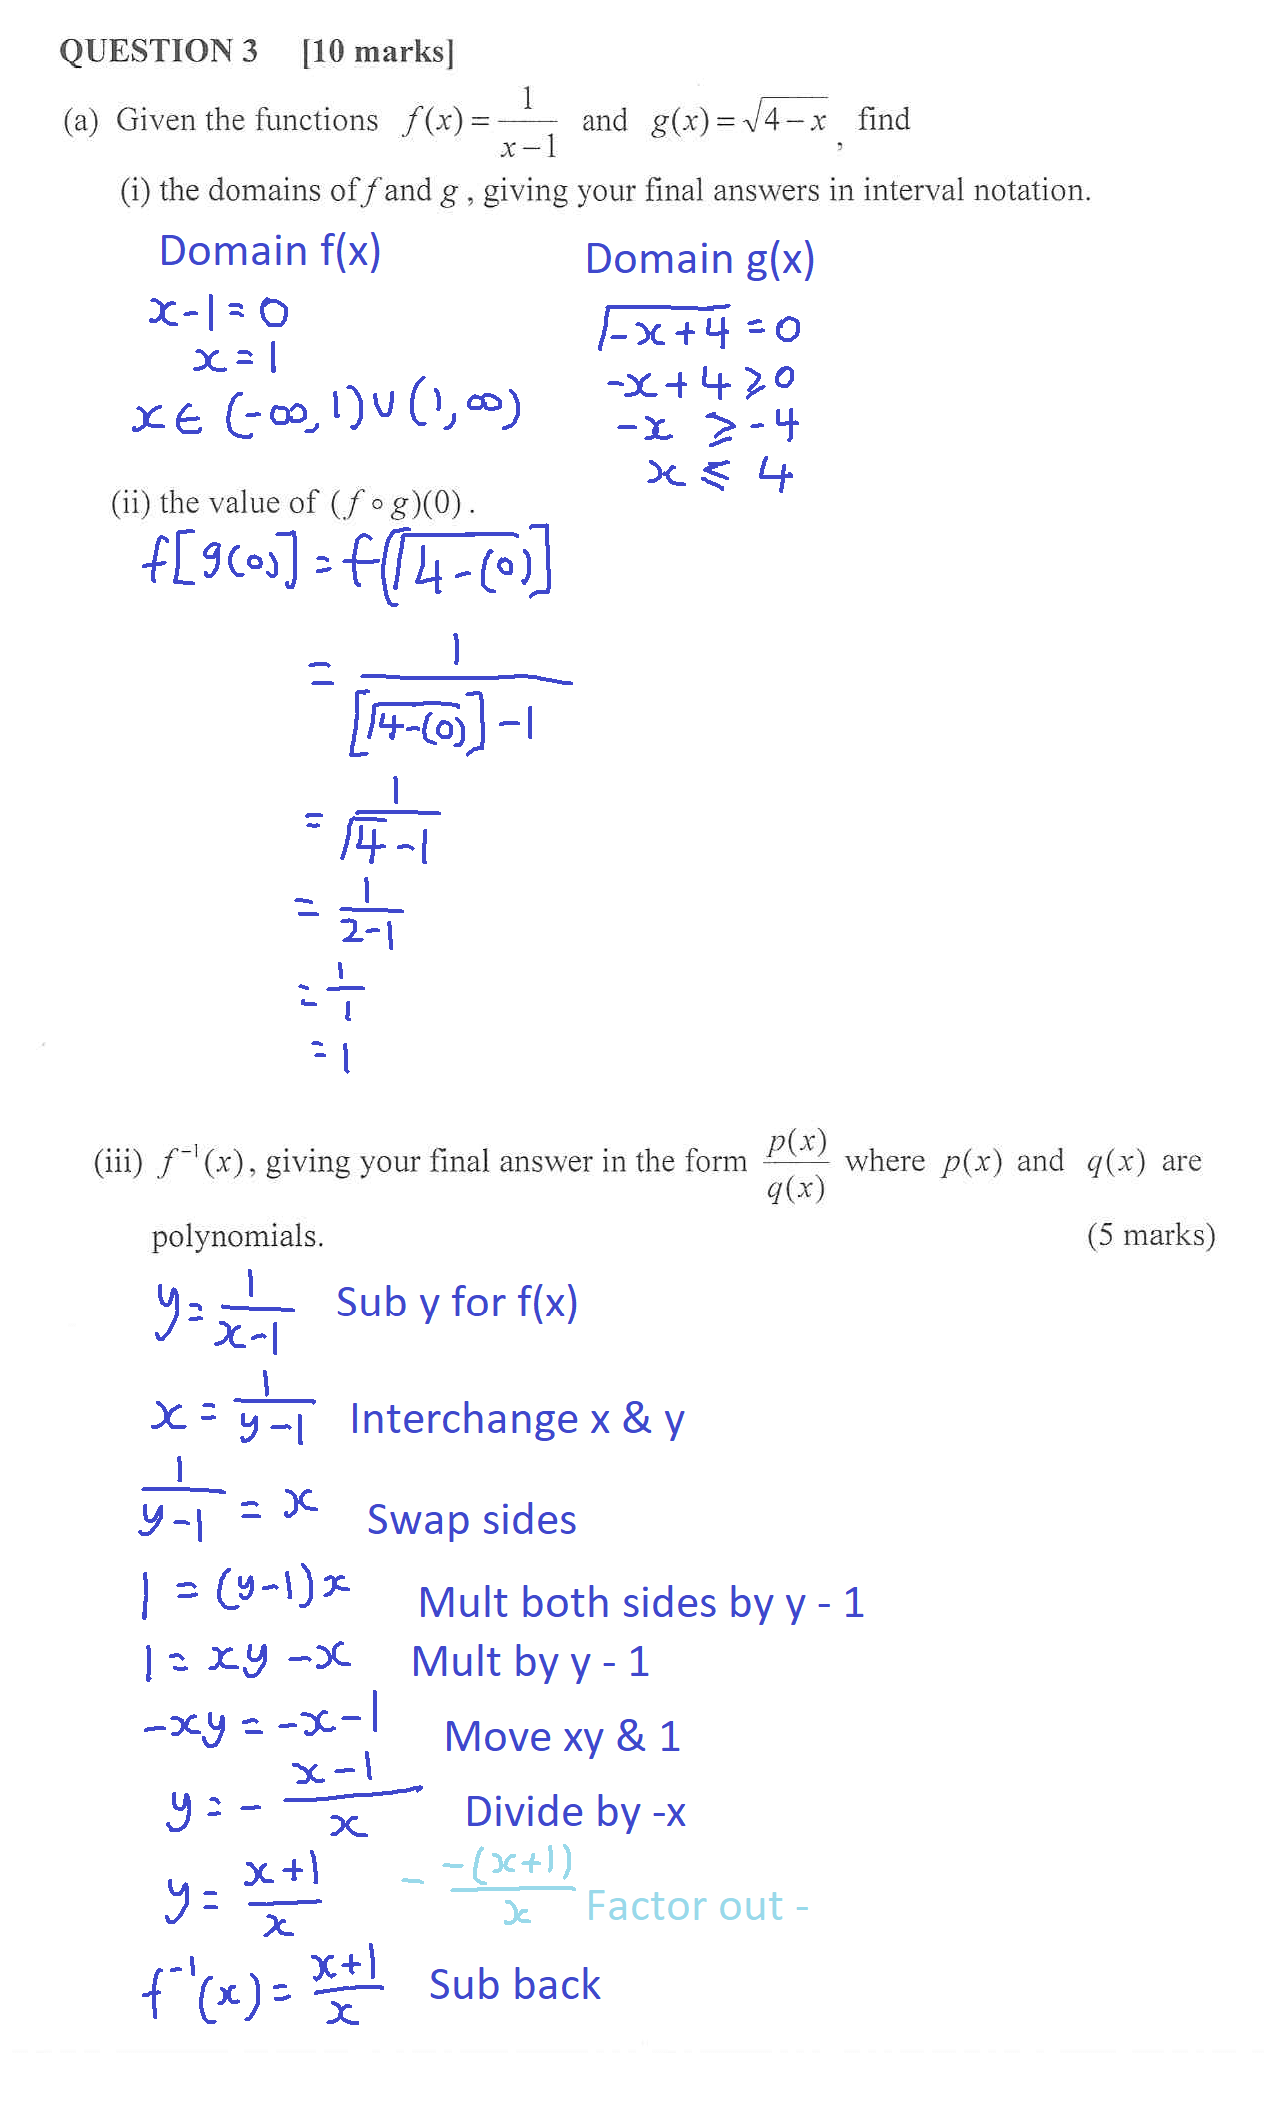 QUESTION 3 [10 marks]
(a) Given the functions f(x) = 1/(x−1) and g(x) = √(4−x) , find
(i) the domains of f and g , giving your final answers in interval notation.
Domain f(x)
x-1 = 0
x = 1
x ∈ (-∞, 1) ∪ (1, ∞)
Domain g(x)
√(-x+4) = 0
-x+4 ≥ 0
-x ≥ -4
x ≤ 4
(ii) the value of (f ∘ g)(0) .
f[g(0)] = f(√(4-(0))]
= 1/([√(4-(0))]-1)
= 1/(√4-1)
= 1/(2-1)
= 1/1
= 1
(iii) f⁻¹(x), giving your final answer in the form p(x)/q(x) where p(x) and q(x) are
polynomials. (5 marks)
y = 1/(x-1) Sub y for f(x)
x = 1/(y-1) Interchange x & y
1/(y-1) = x Swap sides
1 = (y-1)x Mult both sides by y - 1
1 = xy -x Mult by y - 1
-xy = -x-1 Move xy & 1
y = - (x-1)/x Divide by -x
y = (x+1)/x - -(x+1)/x Factor out -
f⁻¹(x) = (x+1)/x Sub back